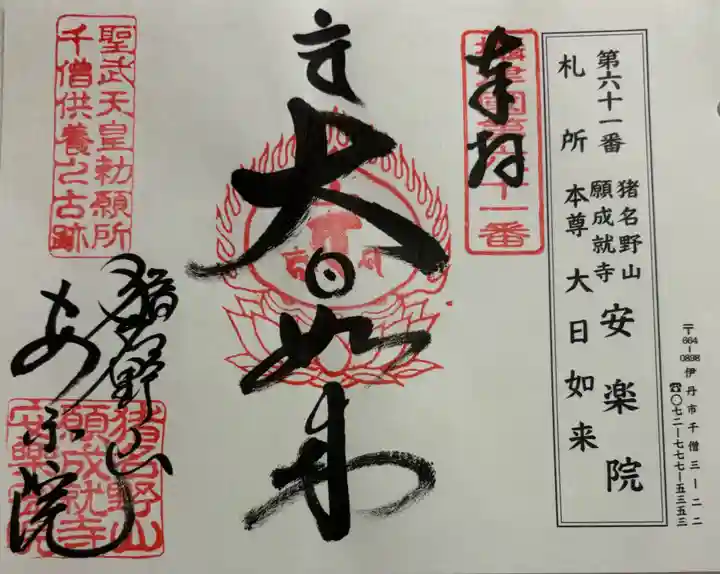 〒664-0898 伊丹市千僧三ー二二
☎〇七二ー七七七ー五三五三
第六十一番
札所
猪名野山
願成就寺
安楽院
本尊 大日如来
奉拝
大日如来
聖武天皇勅願所
千僧供養之古跡
猪名野山
安楽院
猪名野山
願成就寺
安樂院